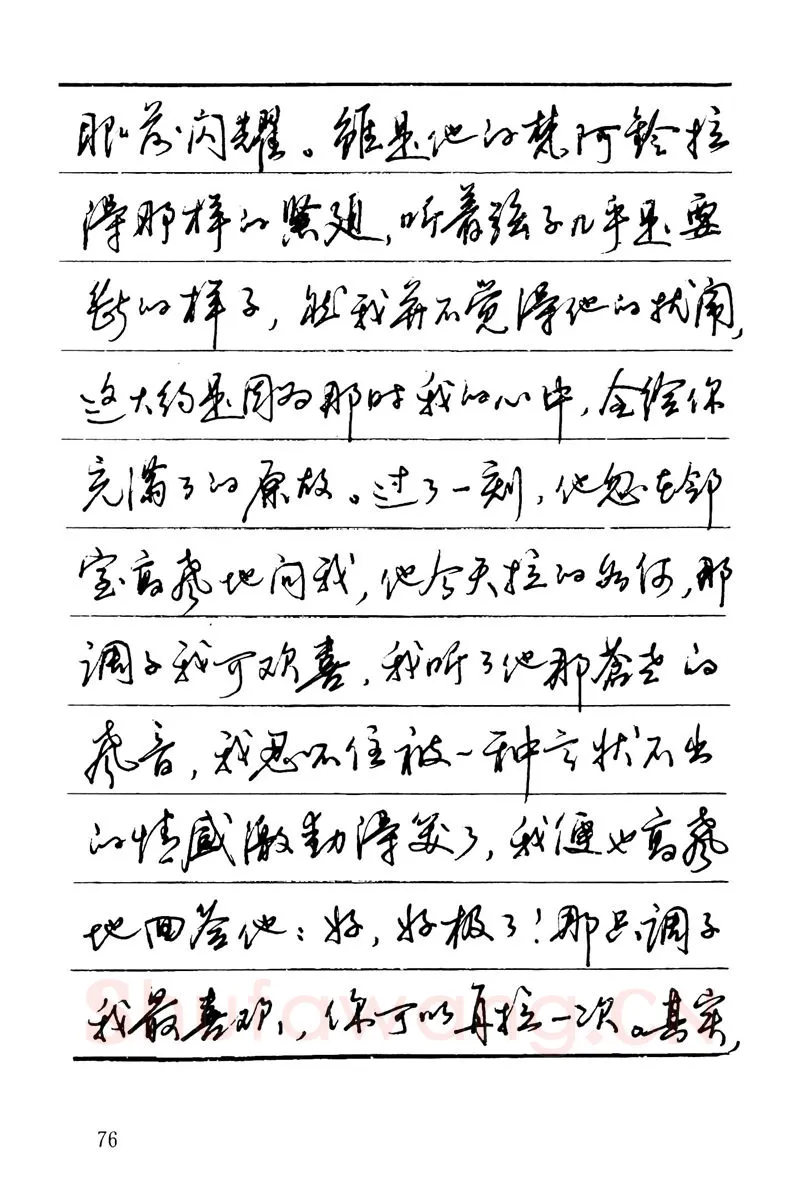 眼前闪耀。虽是他的梵阿铃拉
得那样的紧迫,听着弦子几乎是要
断的样子,然我并不觉得他的扰闹,
这大约是因为那时我的心中,全给你
充满了的原故。过了一刻,他忽在邻
室高声地问我,他今天拉的如何,那
调子我可欢喜,我听了他那苍老的
声音,我忍不住被一种言状不出
的情感激动得哭了,我便也高声
地回答他:好,好极了!那只调子
我最喜欢,你可以再拉一次。其实,
Shufawang.Cn
76